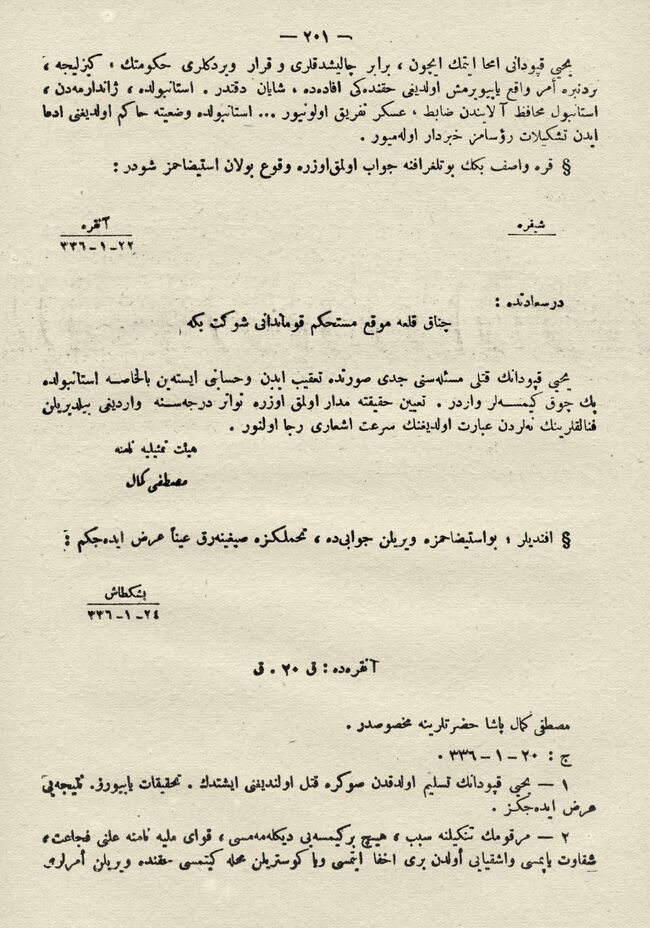 — ٢٠١ —
يحيى قپودانى امحا ايتمك ايچون ، برابر چاليشدقلرى و قرار ويردكلرى حكومتك ، كيزليجه ،
بردنبره أمر واقع ياپيويرمش اولديغى حقنده‌كى افاده‌ده ، شايان دقتدر . استانبولده ، ژاندارمه‌دن ،
استانبول محافظ آلايندن ضابط ، عسكر تفريق اولونيور ... استانبولده وضعيته حاكم اولديغنى ادعا
ايدن تشكيلات رؤسامز خبردار اوله‌ميور .
§ قره واصف بكك بوتلغرافنه جواب اولمق‌اوزره وقوع بولان استيضاحمز شودر :
شيفره
آنقره
٢٢-١-٣٣٦
درسعادتده :
چناق قلعه موقع مستحكم قوماندانى شوكت بكه
يحيى قپودانك قتلى مسئله‌سنى جدى صورتده تعقيب ايدن وحسابنى ايستەين بالخاصه استانبولده
پك چوق كيمسه‌لر واردر . تعيين حقيقته مدار اولمق اوزره تواتر درجه‌سنه وارديغى بيلديريلن
فنالقلرينك نه‌لردن عبارت اولديغنك سرعت اشعارى رجا اولنور .
هيئت تمثيليه نامنه
مصطفى كمال
§ افنديلر ؛ بواستيضاحمزه ويريلن جوابى‌ده ، تحملكزه صيغينه‌رق عيناً عرض ايده‌جكم :
بشكطاش
٢٤-١-٣٣٦
آنقره‌ده : ق ٢٠ . ق
مصطفى كمال پاشا حضرتلرينه مخصوصدر .
ج : ٢٠-١-٣٣٦ .
١ — يحيى قپودانك تسليم اولدقدن صوكره قتل اولنديغنى ايشتدك . تحقيقات ياپيورز. نتيجه‌يى
عرض ايده‌جكز .
٢ — مرقومك تنكيلنه سبب ، هيچ بركيمسه‌يى ديكله‌مه‌مسى ، قواى مليه نامنه علنى فجاعت ،
شقاوت ياپمسى واشقيايى أولدن برى اخفا ايتمسى ويا كوستريلن محله كيتمسى حقنده ويريلن أمرلرى